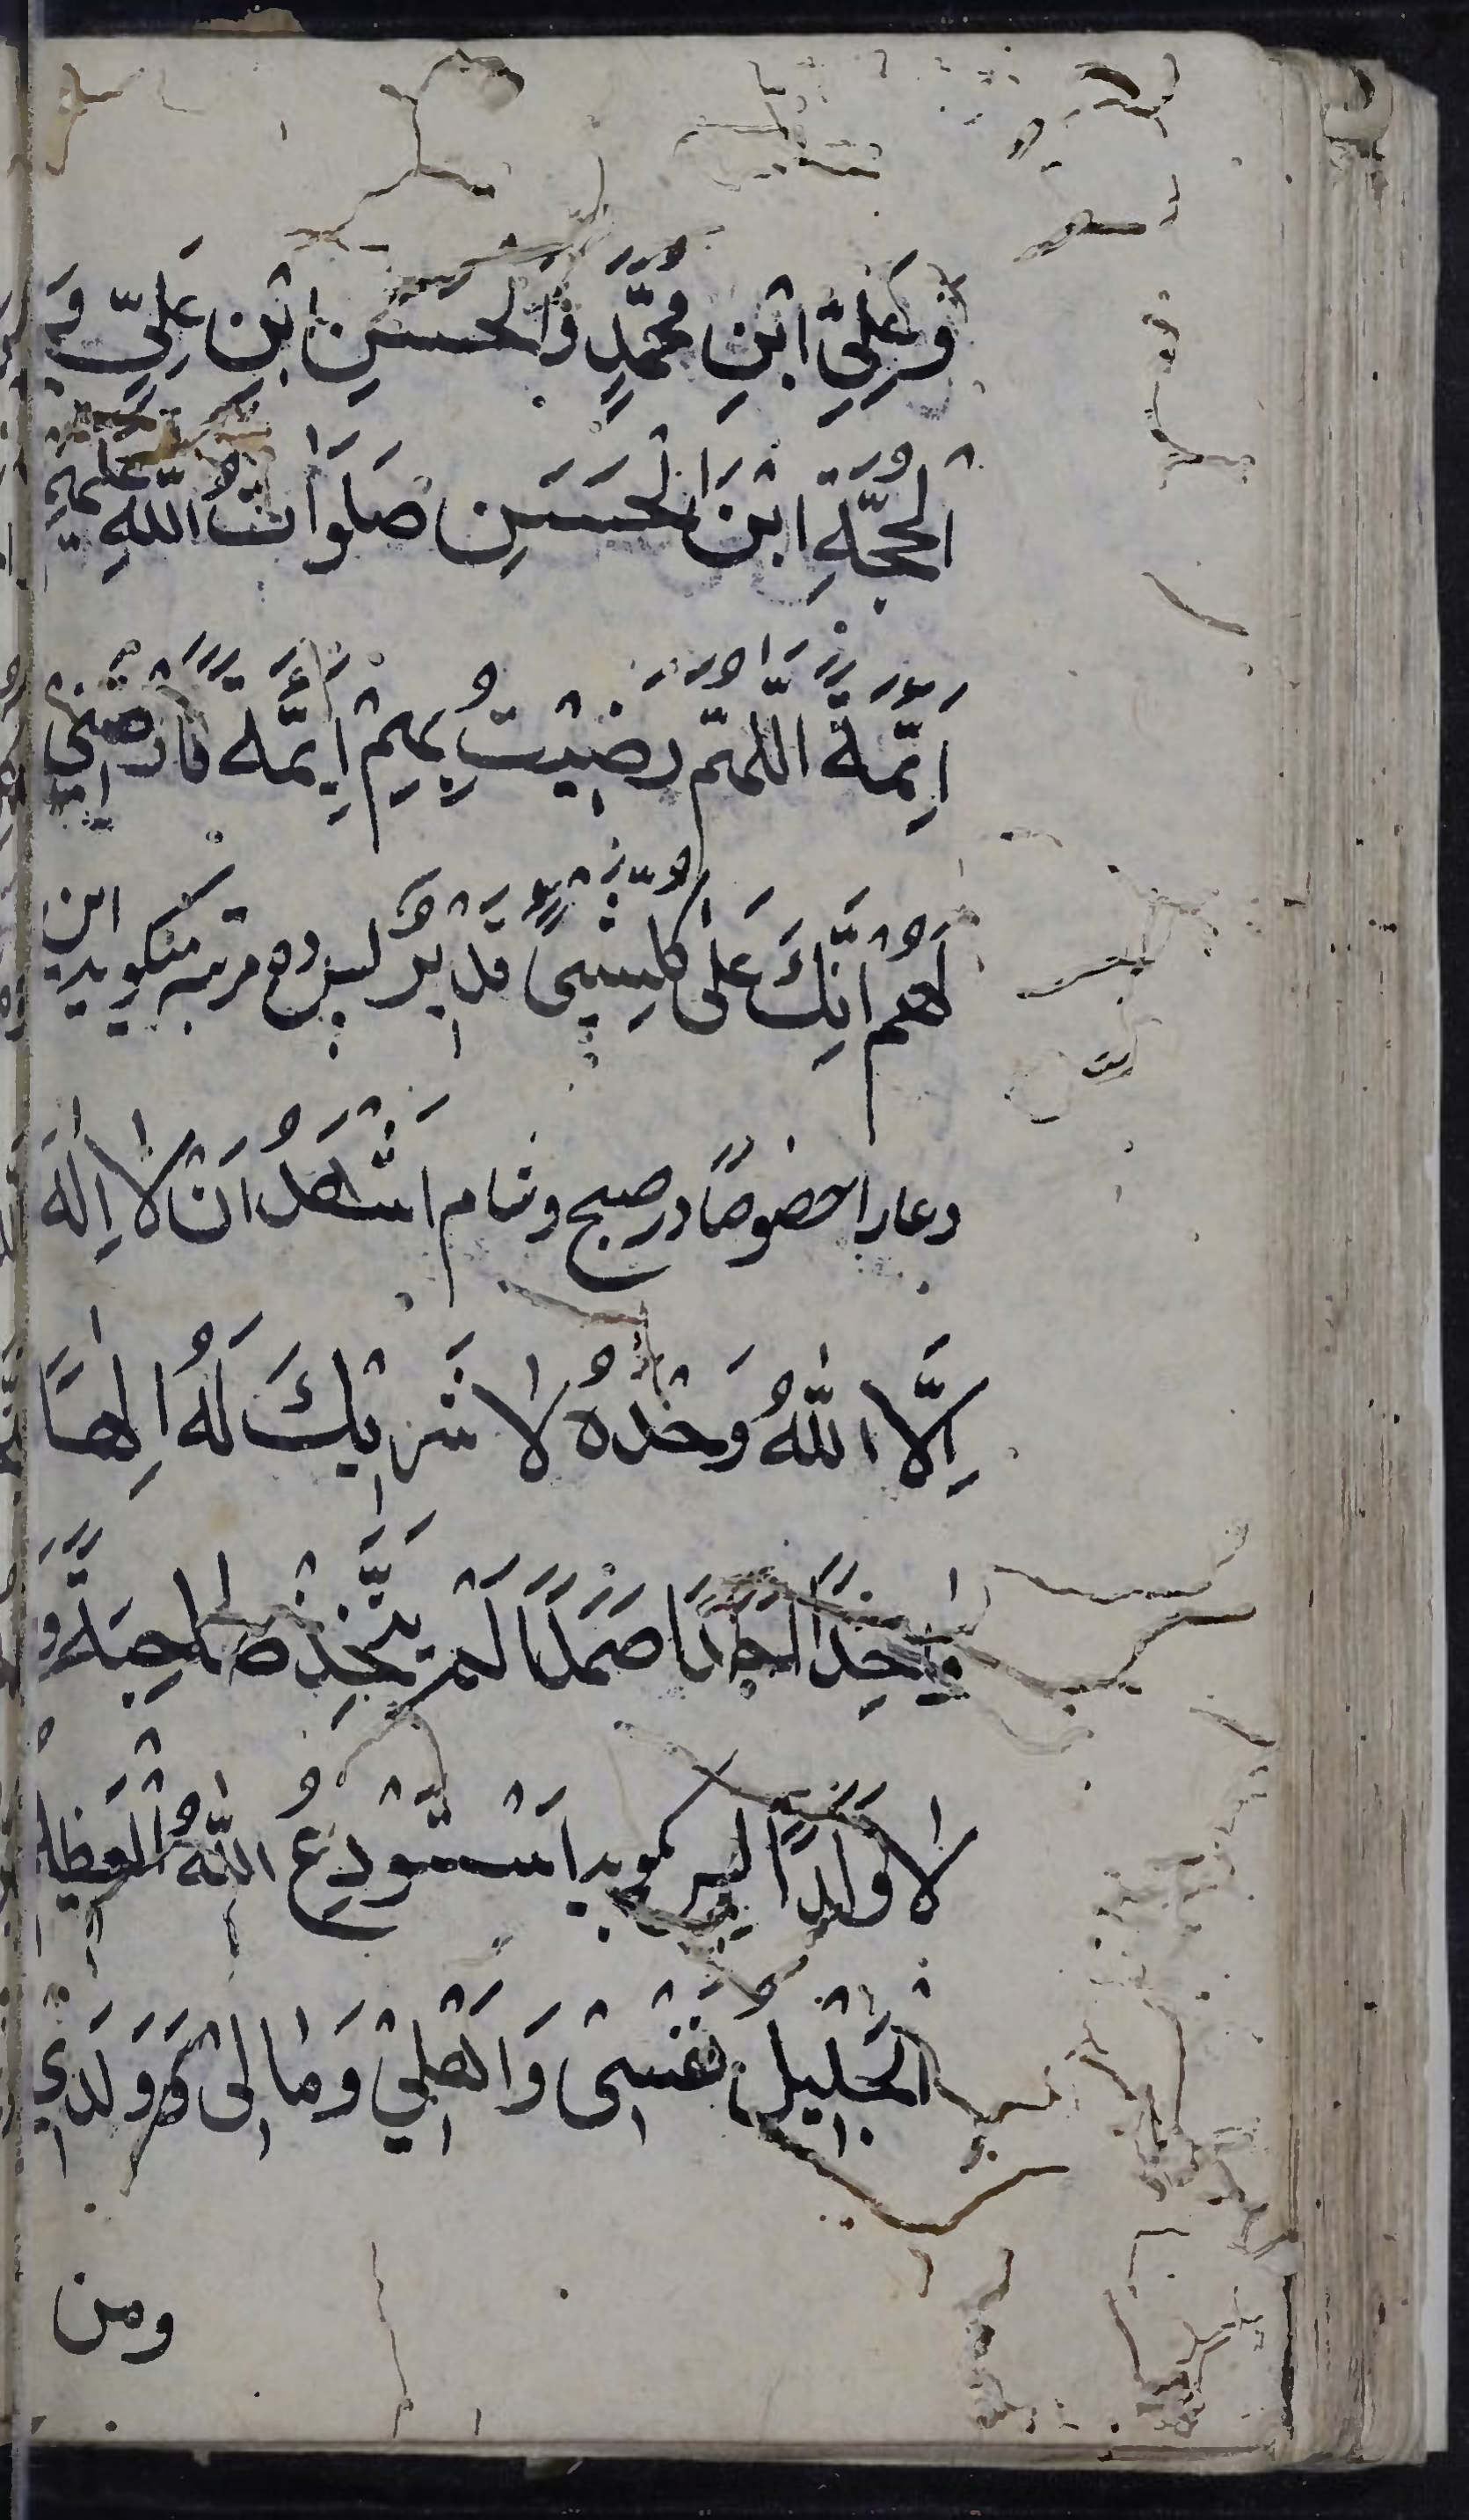 وَعَلِيِّ ابْنِ مُحَمَّدٍ وَالْحَسَنِ ابْنِ عَلِيٍّ وَ
الْحُجَّةِ ابْنَ الْحَسَنِ صَلَوَاتُ اللّٰهِ عَلَيْهِمْ
اَئِمَّةً اَللّٰهُمَّ رَضِيْتُ بِهِمْ اَئِمَّةً فَارْضَنِيْ
لَهُمْ اِنَّكَ عَلٰى كُلِّشَيْئٍ قَدِيْرٌ پس ده مرتبه میکوید این
دعا را خصوصاً در صبح و شام اَشْهَدُ اَنْ لَا اِلٰهَ
اِلَّا اللّٰهُ وَحْدَهُ لَا شَرِيْكَ لَهُ اِلٰهًا
وَاحِدًا اَحَدًا صَمَدًا لَمْ يَتَّخِذْ صَاحِبَةً وَّ
لَا وَلَدًا پس کوید اَسْتَوْدِعُ اللّٰهَ الْعَظِيْمَ
الْجَلِيْلَ نَفْسِىْ وَاَهْلِيْ وَمَالِىْ وَوَلَدِيْ
ومن